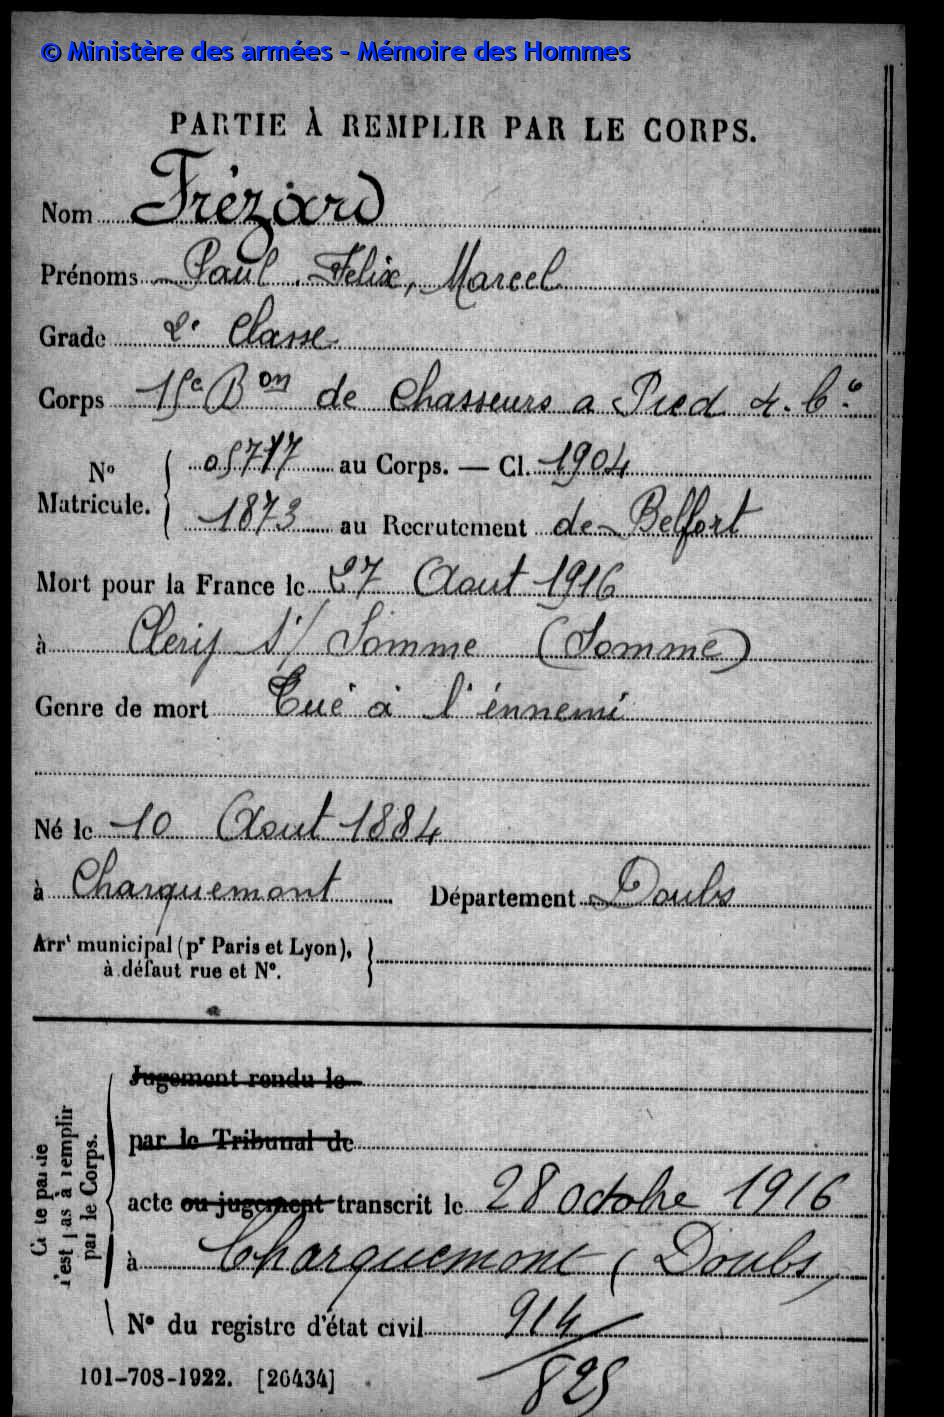 © Ministère des armées - Mémoire des Hommes
PARTIE À REMPLIR PAR LE CORPS.
Nom Frézard
Prénoms Paul, Felix, Marcel
Grade 2e Classe
Corps 15e Bon de Chasseurs a Pied 4. Cie
No Matricule. 05717 au Corps. — Cl. 1904
1873 au Recrutement de Belfort
Mort pour la France le 27 Aout 1916
à Clery s/ Somme (Somme)
Genre de mort Tué à l'énnemi
Né le 10 Aout 1884
à Charquemont Département Doubs
Arrt municipal (pr Paris et Lyon),
à défaut rue et No.
Jugement rendu le
par le Tribunal de
acte ou jugement transcrit le 28 octobre 1916
à Charquemont (Doubs)
No du registre d'état civil 914/825
Cette partie
n'est pas à remplir
par le Corps.
101-708-1922. [26434]